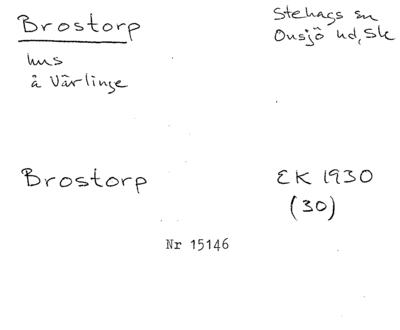 Brostorp
Stehags sn
Onsjö hd, Sk
hus
å Värlinge
Brostorp
EK 1930
(30)
Nr 15146